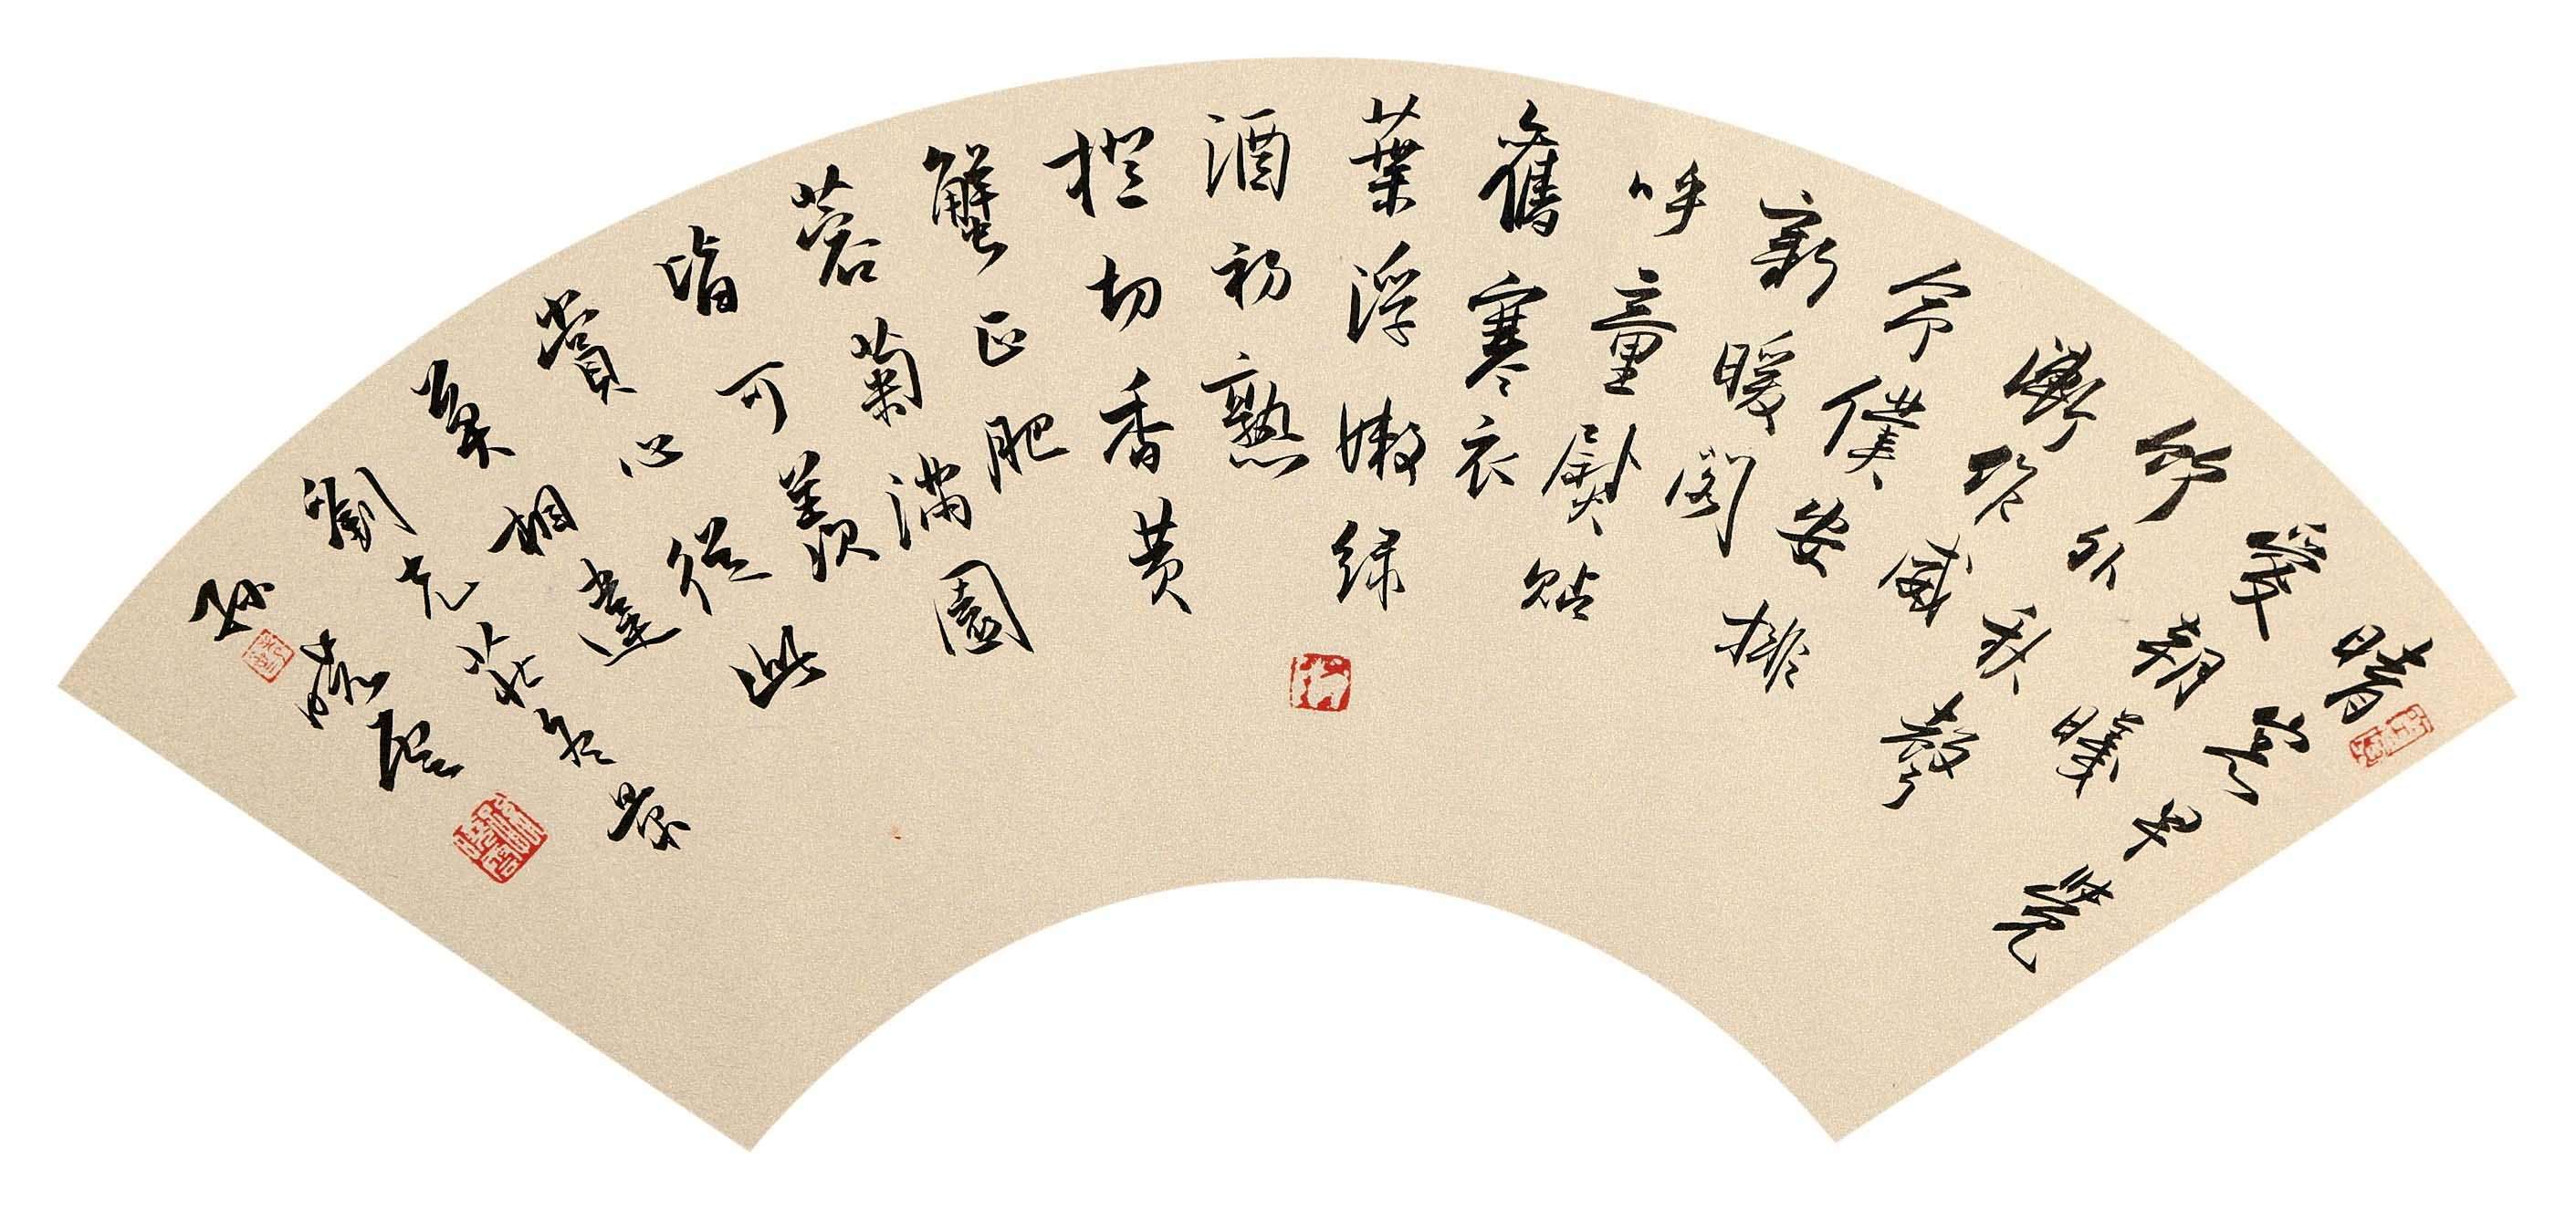 晴窗早覺
愛朝曦
竹外秋聲
漸作威
命僕安排
新暖閣
呼童熨貼
舊寒衣
葉浮嫩綠
酒初熟
橙切香黃
蟹正肥
蓉菊滿園
皆可羨
賞心從此
莫相違
劉克莊冬景
孫